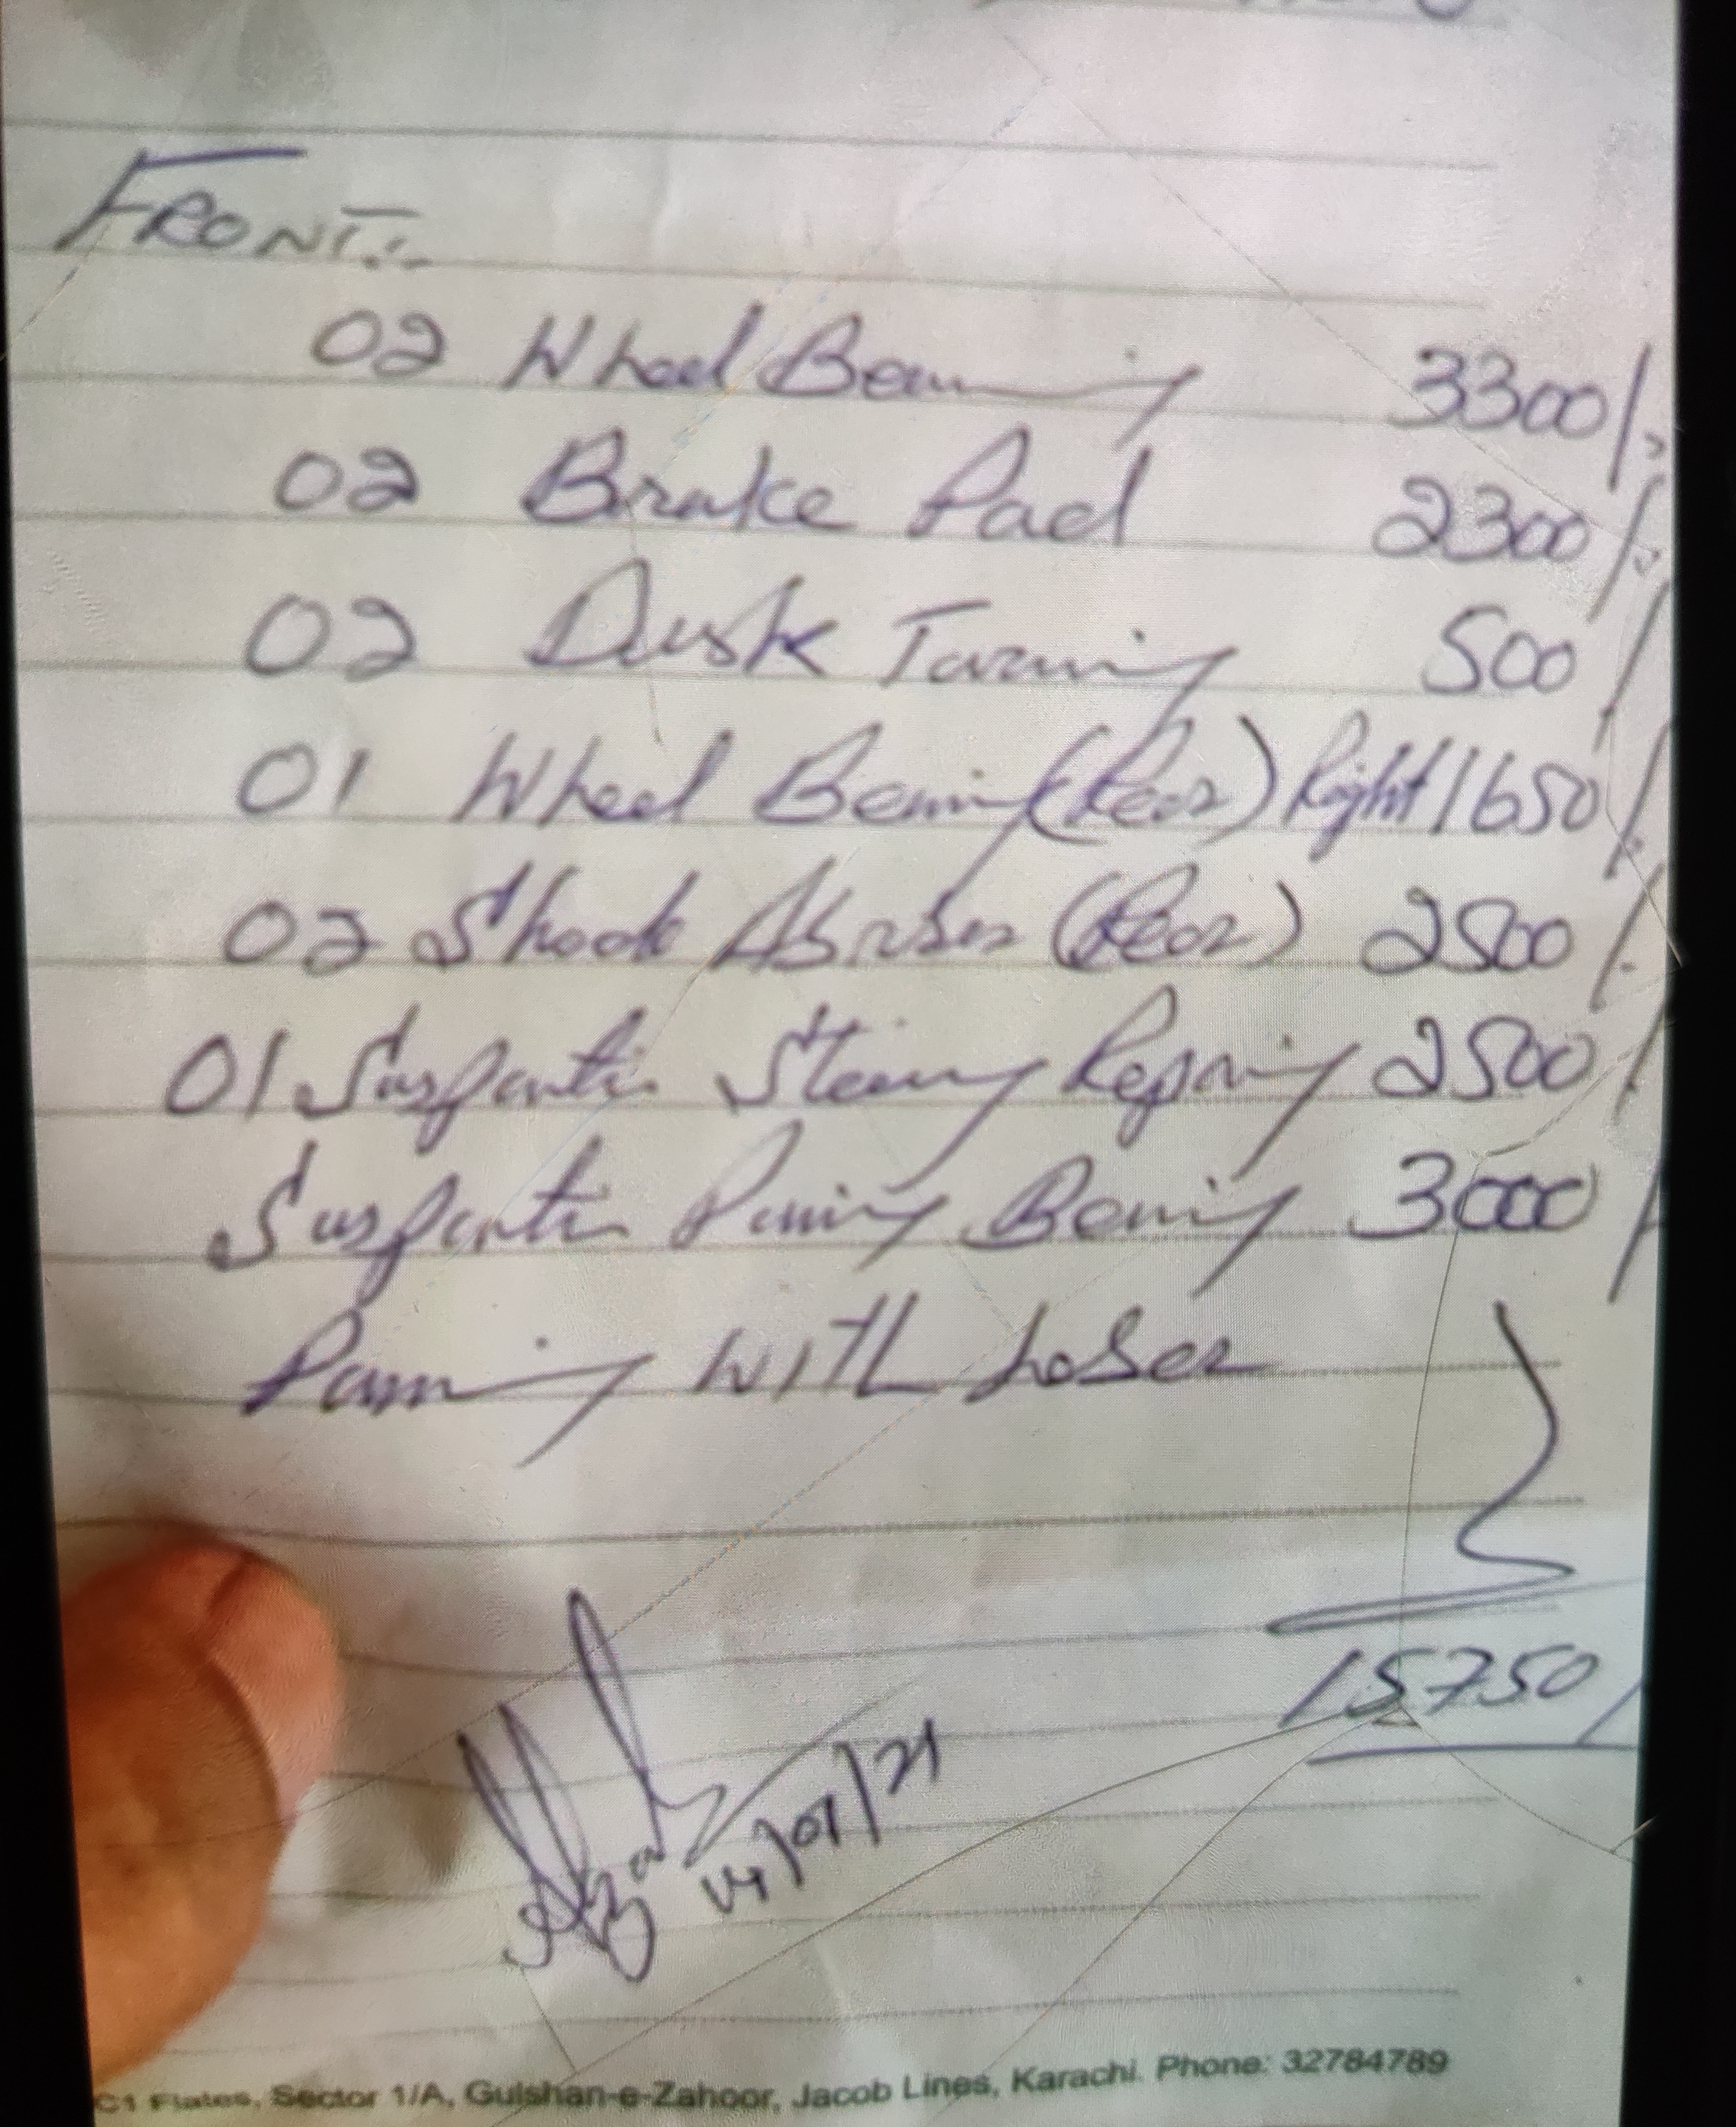 FRONT:-
02 Wheel Bearing 3300/-
02 Brake Pad 2300/-
02 Dusk Turning 500/
01 Wheel Bearing (Rear) Right 1650/-
02 Shock Absrber (Rear) 2500/-
01 Suspantion Steering Reparing 2500/
Suspantion Bearing 3000/
With Laber
15750/
14/01/21
C1 Flates, Sector 1/A, Gulshan-e-Zahoor, Jacob Lines, Karachi. Phone: 32784789